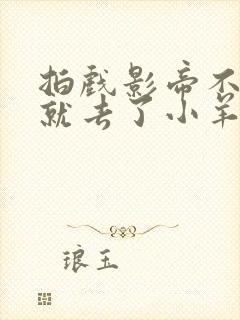 拍戏影帝不
就去了小羊
琅玉